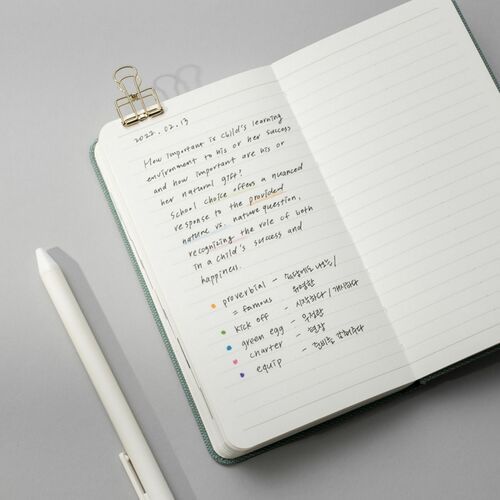 2022. 02. 13
How important is child's learning
environment to his or her success
and how important are his or
her natural gift?
School choice offers a nuanced
response to the provided
nature vs. nature question,
recognizing the role of both
in a child's success and
happiness.
proverbial - 속담에도 나오는/
= famous 유명한
kick off - 시작하다/개시하다
green egg -
charter - 헌장
equip - 갖추다